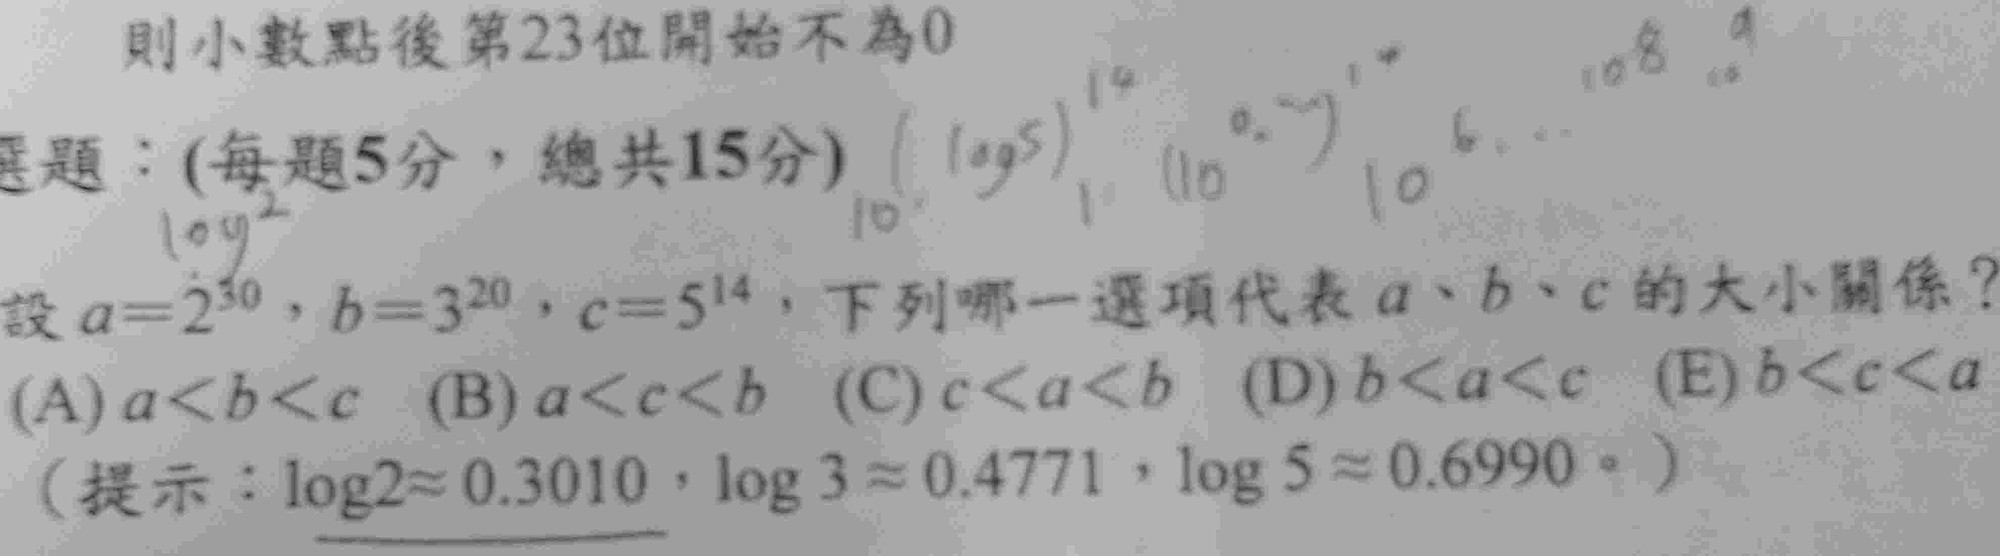 則小數點後第23位開始不為0
選題：(每題5分，總共15分)
(log5)¹⁴
10
(10⁰·
10⁶·...
10⁸
log2
設 a=2³⁰，b=3²⁰，c=5¹⁴，下列哪一選項代表 a、b、c 的大小關係？
(A) a<b<c (B) a<c<b (C) c<a<b (D) b<a<c (E) b<c<a
（提示：log2≈ 0.3010，log 3 ≈ 0.4771，log 5 ≈ 0.6990。）